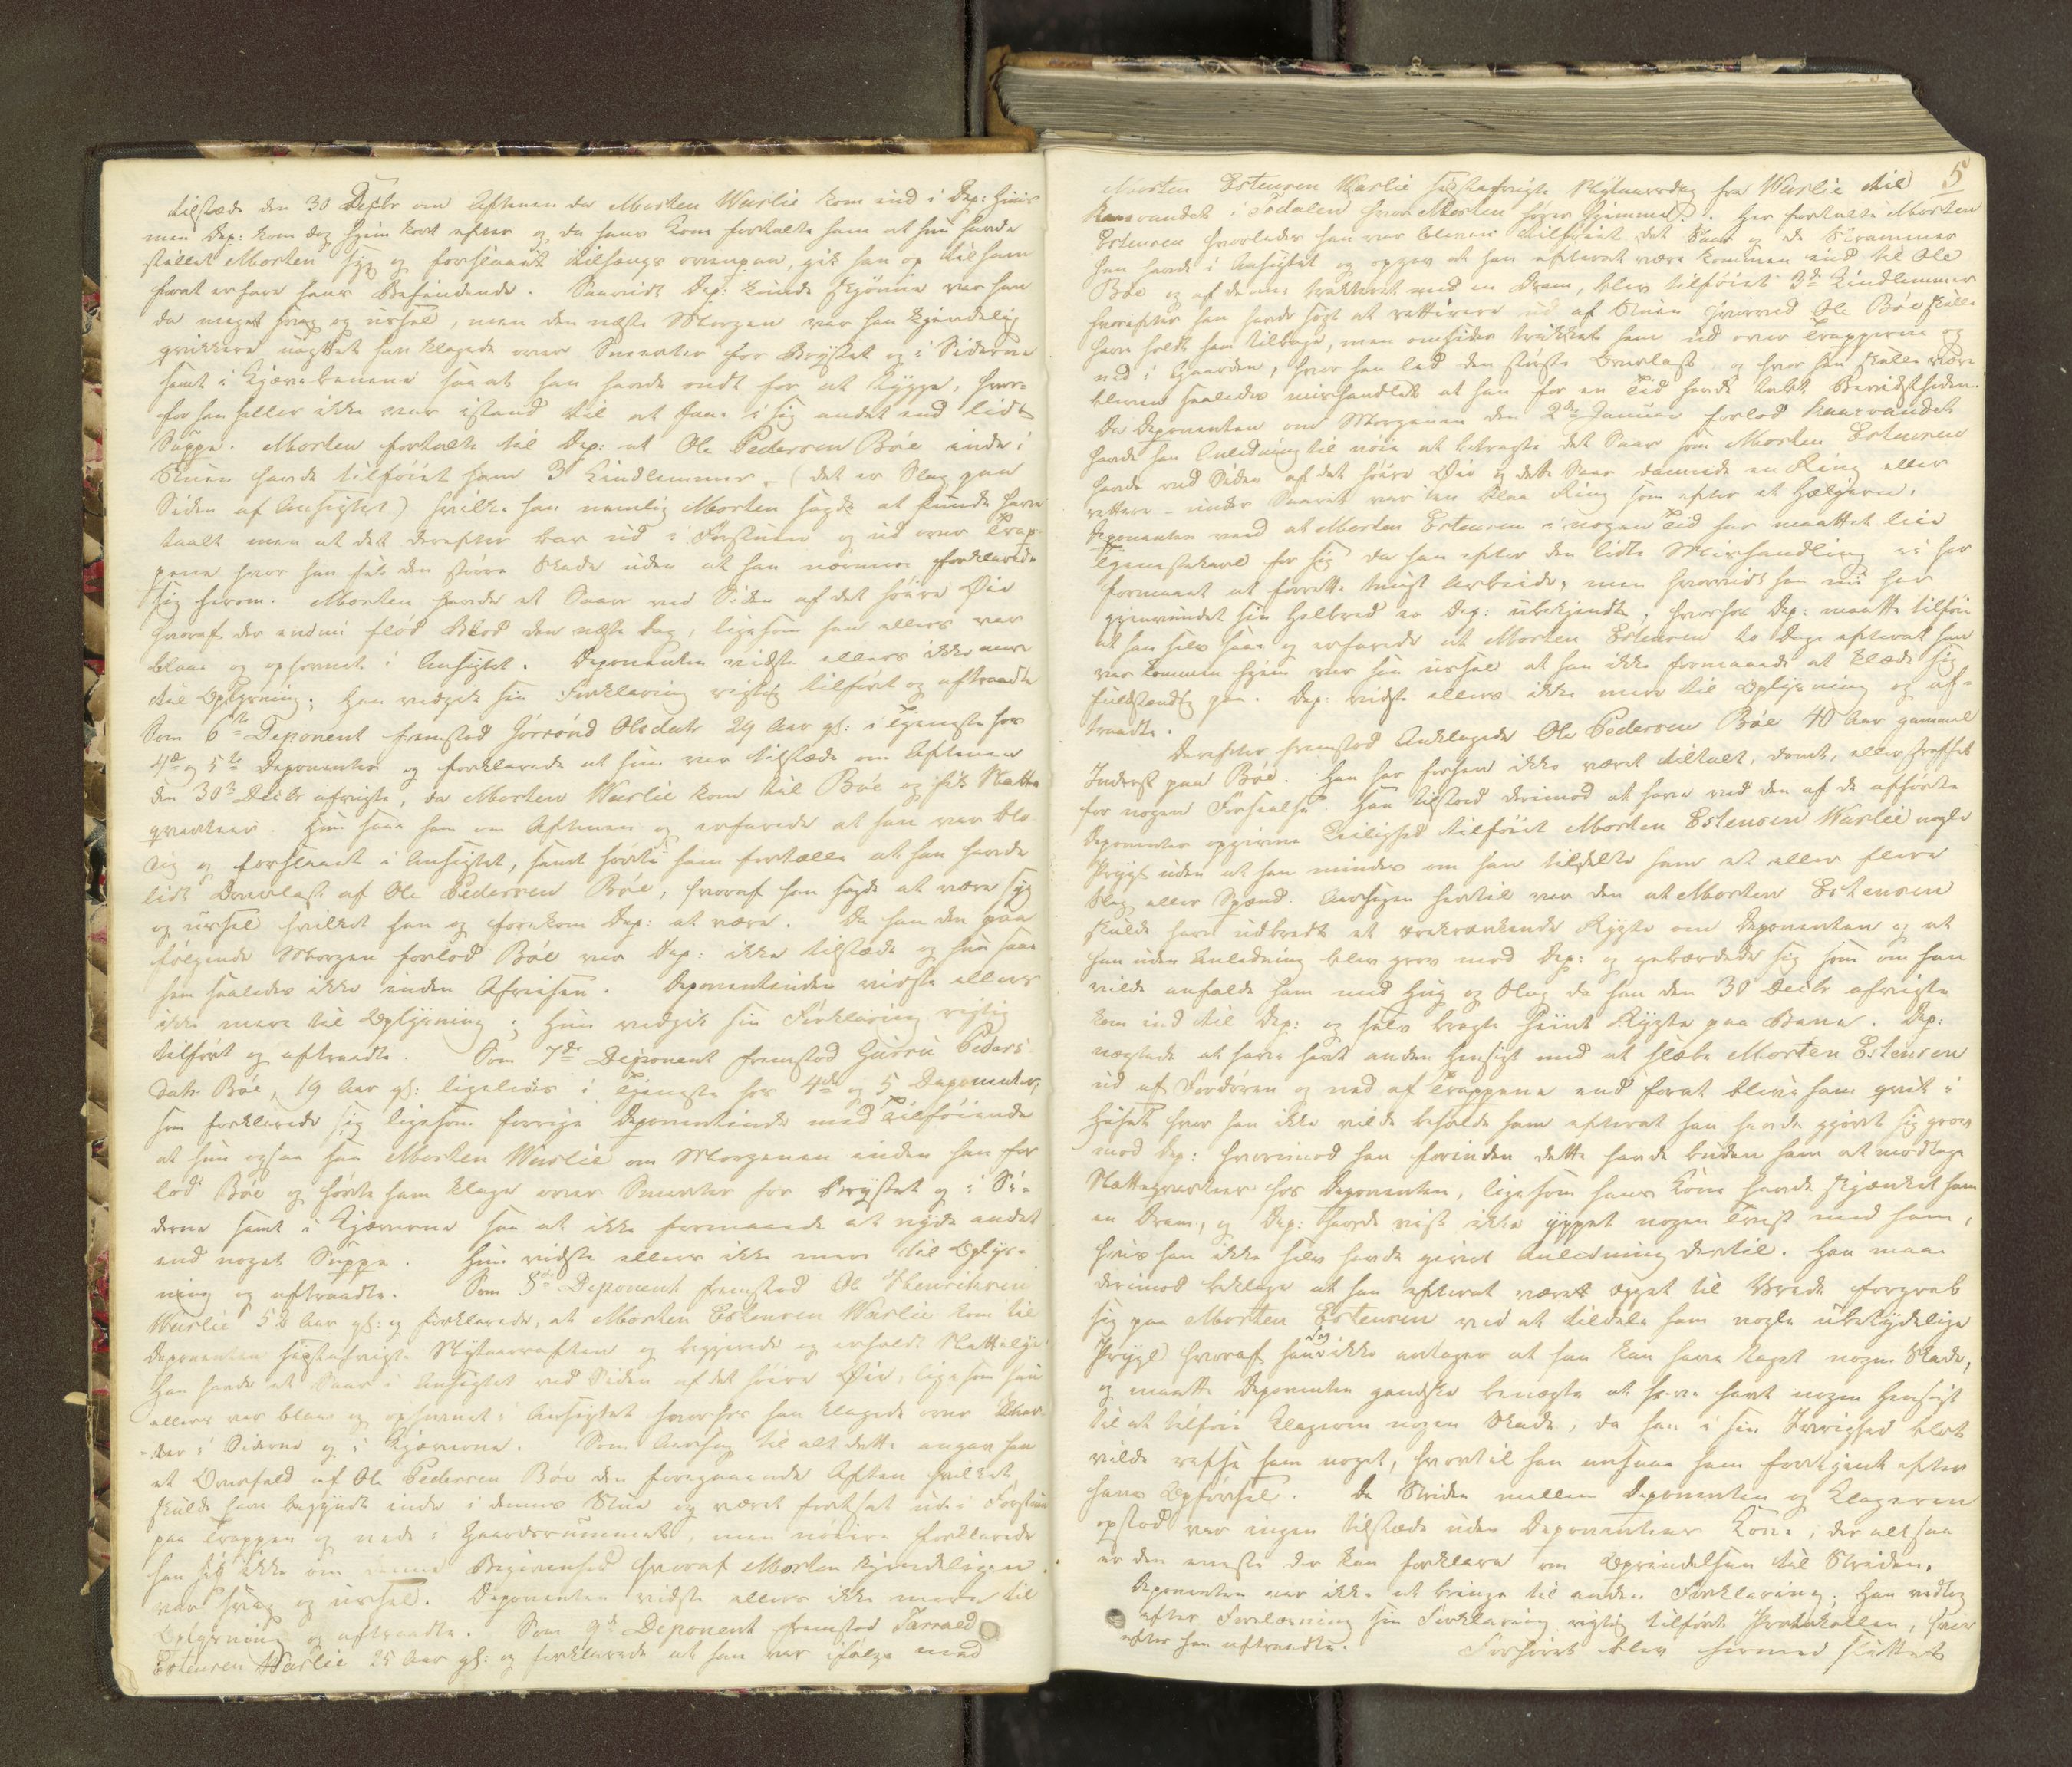 tilstæde den 30 Decbr om Aftenen da Morten Warlie kom ind i Dep: Huus
men Dep: kom dog hjem kort efter og da hans Kone fortalte ham at hun havde
stillet Morten syg og forslaaet tilsengs ovenpaa, gik han op til ham
forat erfare hans Befindende. Saavidt Dep: kunde skjønne var han
da meget svag og ussel, men den næste Morgen var han kjendelig
qvikkere uagtet han klagede over Smerter for Brystet og i Siderne
samt i Kjævebenene saa at han havde ondt for at tygge, hvor-
for han heller ikke var istand til at faae i sig andet end lidt
Suppe. Morten fortalte til Dep: at Ole Pedersen Böe inde i
Stuen havde tilföiet ham 3 Kindlemmer, (det er Slag paa
Siden af Ansigtet) hvilke han nemlig Morten sagde at kunde have
taalt men at det derefter bar ud i Forstuen og ud over Trap-
pene hvor han fik den större Skade uden at han nærmere forklarede
sig herom. Morten havde et Saar ved Siden af det höire Øie
hvoraf der endnu flöd Blod den næste Dag, ligesom han ellers var
blaae og ophovnet i Ansigtet. Deponenten vidste ellers ikke mere
til Oplysning; han vedgik sin Forklaring rigtig tilfört og aftraadte
Som 6te Deponent fremstod Jörrönd Olsdatr 29 Aar gl: i Tjeneste hos
4de og 5te Deponenter og forklarede at hun var tilstæde om Aftenen
den 30te Decbr afvigte, da Morten Warlie kom til Böe og fik Natte
qvarteer. Hun saae ham om Aftenen og erfarede at han var blo-
dig og forslaaet i Ansigtet, samt hörte ham fortælle at han havde
lidt Overlast af Ole Pedersen Böe, hvoraf han sagde at være syg
og ussel hvilket han og forekom Dep: at være. Da han den paa
fölgende Morgen forlod Böe var Dep: ikke tilstæde og hun saae
ham saaledes ikke inden Afreisen. Deponentinden vidste ellers
ikke mere til Oplysning; hun vedgik sin Forklaring rigtig
tilfört og aftraadte. Som 7de Deponent fremstod Gurru Peders
datr Böe, 19 Aar gl: ligeledes i Tjeneste hos 4de og 5 Deponenter,
som forklarede sig ligesom forrige Deponentinde med Tilföiende
at hun ogsaa saae Morten Warlie om Morgenen inden han for
lod Böe og hörte ham klage over Smerter for Brystet og i Si-
derne samt i Kjæverne saa at ikke formaaede at nyde andet
end noget Suppe. Hun vidste ellers ikke mere til Oplys-
ning og aftraadte. Som 8de Deponent fremstod Ole Henriksen
Warlie 52 Aar gl: og forklarede, at Morten Estensen Warlie kom til
Deponenten sidstafvigte Nytaarsaften og begjerede og erholdt Nattelye
Han havde et Saar i Ansigtet ved Siden af det höire Øie, ligesom han
ellers var blaae og ophovnet i Ansigtet hvorhos han klagede over Skav-
der i Siderne og i Kjæverne. Som Aarsag til alt dette angav han
et Overfald af Ole Pedersen Böe den foregaaende Aften hvilket
skulde have begyndt inde i dennes Stue og været fortsat ude i Forstuen
paa Trappen og nede i Gaardsrummet, men nöiere forklarede
han sig ikke om denne Begivenhed hvoraf Morten kjendeligen
var svag og ussel. Deponenten vidste ellers ikke mere til
Oplysning og aftraadte. Som 9de Deponent fremstod Tarrald
Estensen Warlie 25 Aar gl: og forklarede at han var ifölge med
5
Morten Estensen Warlie sidstafvigte Nytaarsdag fra Warlie til
Kaarvandet i Todalen hvor Morten hører hjemme. Her fortalte Morten
Estensen hvorledes han var bleven tilföiet det Saar og de Skrammer
han havde i Ansigtet og opgav at han efterat være kommen ind til Ole
Böe og af denne trakteret med en Dram, blev tilföiet 3de Kindlemmer
hvorefter han havde sögt at rettirere ud af Stuen hvorved Ole Böe skulle
have holdt ham tilbage, men omsider trukket ham ud over Trapperne og
ned i Gaarden, hvor han led den störste Overlast, og hvor han skulle være
bleven saaledes mishandlet at han for en Tid havde tabt Bevidstheden.
Da Deponenten om Morgenen den 2den Januar forlod Kaarvandet
havde han Anledning til nöie at betragte det Saar som Morten Estensen
havde ved Siden af det höire Øie og dette Saar dannede en Ring eller
rettere - under Saaret var en blaa Ring som efter et Hæljern.
Deponenten veed at Morten Estensen i nogen Tid har maattet leie
Tjenestekarl for sig da han efter den lidte Mishandling ei har
formaaet at forrette tungt Arbeide, men hvorvidt han nu har
gjenvundet sin Helbred er Dep: ubekjendt; hvorhos Dep: maatte tilföie
at han selv saae og erfarede at Morten Estensen to Dage efterat han
var kommen hjem var saa ussel at han ikke formaaede at klæde sig
fuldstændig paa. Dep: vidste ellers ikke mere til Oplysning og af-
traadte.
Derefter fremstod Anklagede Ole Pedersen Böe 40 Aar gammel
Inderst paa Böe. Han har forhen ikke været tiltalt, dömt, eller straffet
for nogen Forseelse. Han tilstod derimod at have ved den af de afhörte
Deponenter opgivne Leilighed tilföiet Morten Estensen Warlie nogle
Prygl uden at han mindes om han tildelte ham et eller flere
Slag eller Spænd. Aarsagen hertil var den at Morten Estensen
skulde have udbredt et ærekrænkende Rygte om Deponenten og at
han uden Anledning blev grov mod Dep: og gebærdede sig som om han
vilde anfalde ham med Hug og Slag da han den 30 Decbr afvigte
kom ind til Dep: og selv bragte hiint Rygte paa Bane. Dep:
nægtede at have havt anden Hensigt med at slæbe Morten Estensen
ud af Fordören og ned af Trappene end forat blive ham qvit i
Huset hvor han ikke vilde beholde ham efterat han havde gjort sig grov
mod Dep: hvorimod han forinden dette havde buden ham at modtage
Natteqvarteer hos Deponenten, ligesom hans Kone havde skjænket ham
en Dram, og Dep: havde vist ikke yppet nogen Trist med ham,
hvis han ikke selv havde givet Anledning dertil. Han maae
derimod beklage at han efterat været ægget til Vrede forgreb
sig paa Morten Estensen ved at tildele ham nogle ubetydelige
Prygl hvoraf han dog ikke antager at han kan have taget nogen Skade,
og maatte Deponenten gandske benægte at have havt nogen Hensigt
til at tilföie Klageren nogen Skade, da han i sin Ivrighed blot
vilde refse ham noget, hvortil han ansaae ham fortjent efter
hans Opförsel. Da Striden mellem Deponenten og Klageren
opstod var ingen tilstæde uden Deponentens Kone, der altsaa
er den eneste der kan forklare om Oprindelsen til Striden.
Deponenten var ikke at bringe til anden Forklaring; han vedtog
efter Forelæsning sin Forklaring rigtig tilfört Protokollen, hvor
efter han aftraadte. Forhöret blev hermed sluttet